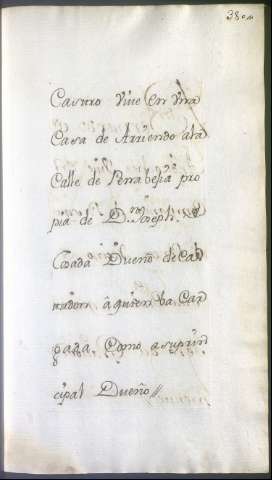 380
Casero vive en vna
Casa de Arriendo ala
Calle de Perrabesia pro
pia de Dn. Joseph
Dueño de Cal
â quien ba Car
gada Como a su prin
cipal Dueño